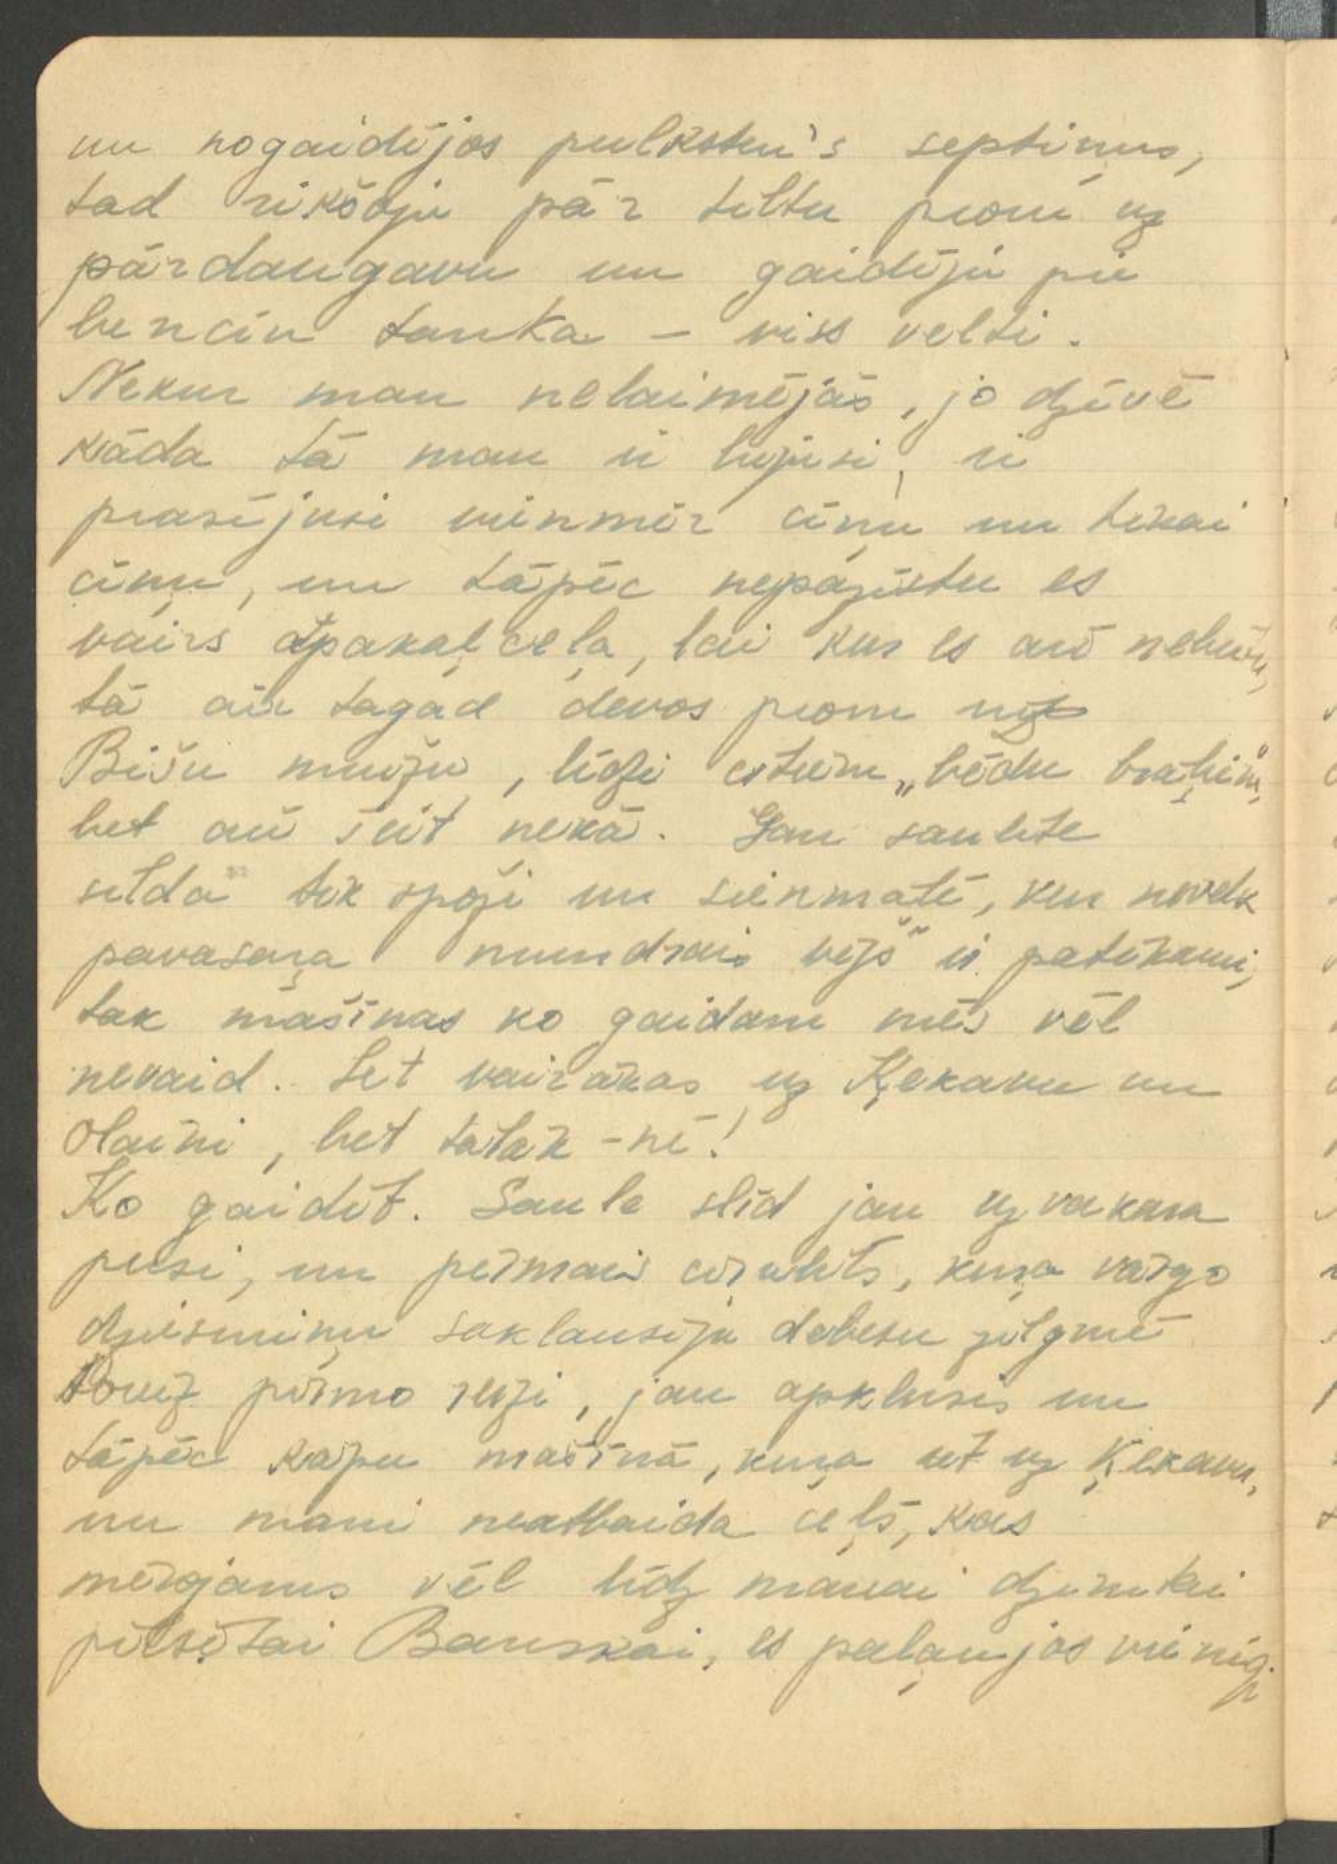 un nogaidījos pulksten's septiņus,
tad rikšoju pār tiltu prom uz
pārdaugavu un gaidīju pie
bencin tanka - viss velti.
Nekur man nelaimējās, jo dzīve
kāda tā man ir bijusi, ir
prasījusi vienmēr cīņu un tikai
cīņu, un tāpēc nepazīstu es
vairs atpakaļ ceļa, lai kur es arī nebūtu,
tā arī tagad devos prom uz
Bišu muižu, līdzi citiem „bēdu brāļiem",
bet arī šeit nekā. Gan saulīte
silda tik spoži un sienmalē, kur nevelk
pavasaŗa mundrais vējš" ir patīkami,
tak mašīnas ko gaidam mēs vēl
nevaid. Iet vairākas uz Ķekavu un
Olaini, bet tālāk - nē!
Ko gaidīt. Saule slīd jau uz vakara
pusi, un pirmais cīrulīts, kuŗa vārgo
dziesmiņu saklausīju debesu zilgmē
šoruiz pirmo reizi, jau apklusis un
tāpēc kāpu mašīnā, kuŗa iet uz Ķekavu,
un mani neatbaida ceļš, kas
mērojams vēl līdz manai dzimtai
pilsētai Bauskai, es paļaujos vienīgi